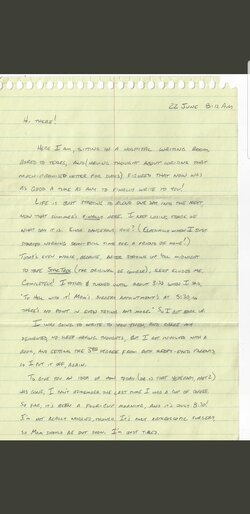 22 JUNE 8:12 AM
HI, THERE!
HERE I AM, SITTING IN A HOSPITAL WAITING ROOM,
BORED TO TEARS, AND (HAVING THOUGHT ABOUT WRITING THAT
MUCH-PROMISED LETTER FOR DAYS) FIGURED THAT NOW WAS
AS GOOD A TIME AS ANY TO FINALLY WRITE TO YOU!
LIFE IS JUST STARTING TO BLEND ONE DAY INTO THE NEXT,
NOW THAT SUMMER'S FINALLY HERE. I KEEP LOSING TRACK OF
WHAT DAY IT IS. KINDA DANGEROUS, HUH? (ESPECIALLY WHEN I JUST
STARTED WORKING SEMI-FULL TIME FOR A FRIEND OF MINE!)
TODAY'S EVEN WORSE, BECAUSE, AFTER STAYING UP TILL MIDNIGHT
TO TAPE STAR TREK (THE ORIGINAL, OF COURSE), SLEEP ELUDED ME.
COMPLETELY! I TOSSED & TURNED UNTIL ABOUT 3:30 WHEN I SAID,
"TO HELL WITH IT! MOM'S SURGERY APPOINTMENT'S AT 5:30, SO
THERE'S NO POINT IN EVEN TRYING ANY MORE." SO I GOT BACK UP.
I WAS GOING TO WRITE TO YOU THEN, AND
NO, WERE HAVING THOUGHTS, BUT I GOT INVOLVED WITH A
BOOK, AND GETTING THE 3RD DEGREE FROM BOTH PARENTS,
SO I PUT IT OFF, AGAIN.
TO GIVE YOU AN IDEA OF HOW TODAY (OR IS THAT YESTERDAY, NOW?)
HAS GONE, I CAN'T REMEMBER THE LAST TIME I HAD A CUP OF COFFEE.
SO FAR, IT'S BEEN A FOUR-CUP MORNING, AND IT'S ONLY 8:30!
I'M NOT REALLY WORRIED, THOUGH. IT'S ONLY ARTHROSCOPIC SURGERY,
SO MOM SHOULD BE OUT SOON. I'M JUST TIRED.